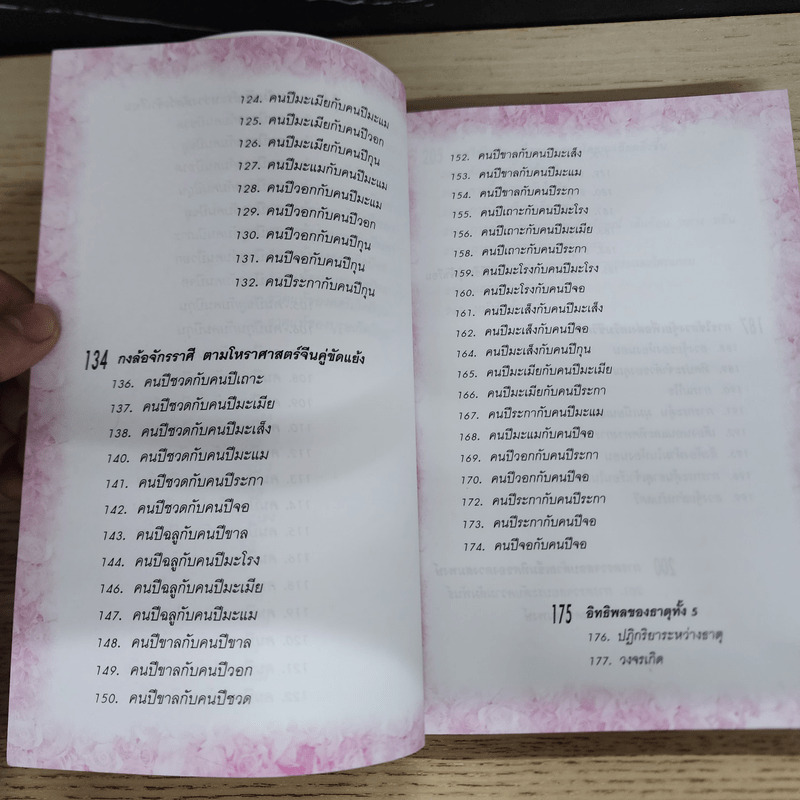 124. คนปีมะเมียกับคนปีมะแม
125. คนปีมะเมียกับคนปีวอก
126. คนปีมะเมียกับคนปีกุน
127. คนปีมะแมกับคนปีมะแม
128. คนปีวอกกับคนปีมะแม
129. คนปีวอกกับคนปีวอก
130. คนปีวอกกับคนปีกุน
131. คนปีจอกับคนปีกุน
132. คนปีระกากับคนปีกุน
134 กงล้อจักรราศี ตามโหราศาสตร์จีนคู่ขัดแย้ง
136. คนปีชวดกับคนปีเถาะ
137. คนปีชวดกับคนปีมะเมีย
138. คนปีชวดกับคนปีมะเส็ง
140. คนปีชวดกับคนปีมะแม
141. คนปีชวดกับคนปีระกา
142. คนปีชวดกับคนปีจอ
143. คนปีฉลูกับคนปีขาล
144. คนปีฉลูกับคนปีมะโรง
146. คนปีฉลูกับคนปีมะเมีย
147. คนปีฉลูกับคนปีมะแม
148. คนปีขาลกับคนปีขาล
149. คนปีขาลกับคนปีวอก
150. คนปีขาลกับคนปีชวด
152. คนปีขาลกับคนปีมะเส็ง
153. คนปีขาลกับคนปีมะแม
154. คนปีขาลกับคนปีระกา
155. คนปีเถาะกับคนปีมะโรง
156. คนปีเถาะกับคนปีมะเมีย
158. คนปีเถาะกับคนปีระกา
159. คนปีมะโรงกับคนปีมะโรง
160. คนปีมะโรงกับคนปีจอ
161. คนปีมะเส็งกับคนปีมะเส็ง
162. คนปีมะเส็งกับคนปีจอ
164. คนปีมะเส็งกับคนปีกุน
165. คนปีมะเมียกับคนปีมะเมีย
166. คนปีมะเมียกับคนปีระกา
167. คนปีระกากับคนปีมะแม
168. คนปีมะแมกับคนปีจอ
169. คนปีวอกกับคนปีระกา
170. คนปีวอกกับคนปีจอ
172. คนปีระกากับคนปีระกา
173. คนปีระกากับคนปีจอ
174. คนปีจอกับคนปีจอ
175 อิทธิพลของธาตุทั้ง 5
176. ปฏิกริยาระหว่างธาตุ
177. วงจรเกิด